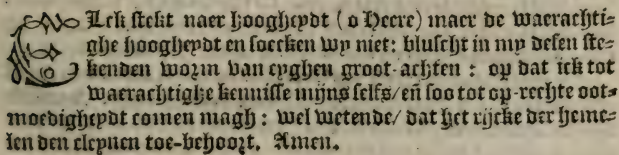 Elck steekt naer hooghepdt (o Heere) maer de waerachti⸗
ghe hooghepdt en soecken wp niet: bluscht in mp desen ste⸗
kenden wozm van epghen groot-achten : op dat ick tot
waerachtighe kennisse mijns selfs/ eñ soo tot op-rechte oot⸗
moedighepdt comen magh : wel wetende/ dat het rijcke der heme⸗
len den clepnen toe-behoozt. Amen.